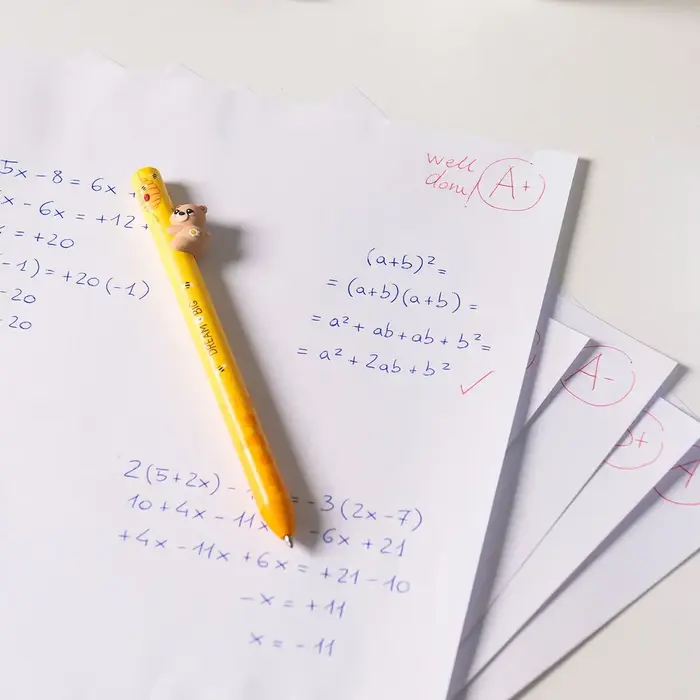 5x - 8 = 6x +
x - 6x = +12 +
= +20
-1) = +20 (-1)
-20
-20
well
done!
A+
(a+b)² =
= (a+b)(a+b) =
= a² + ab + ab + b² =
= a² + 2ab + b²
DREAM BIG
A-
+
A
2(5+2x) - = -3(2x-7)
10 + 4x - 11x -6x + 21
+4x - 11x + 6x = +21 - 10
-x = +11
x = -11